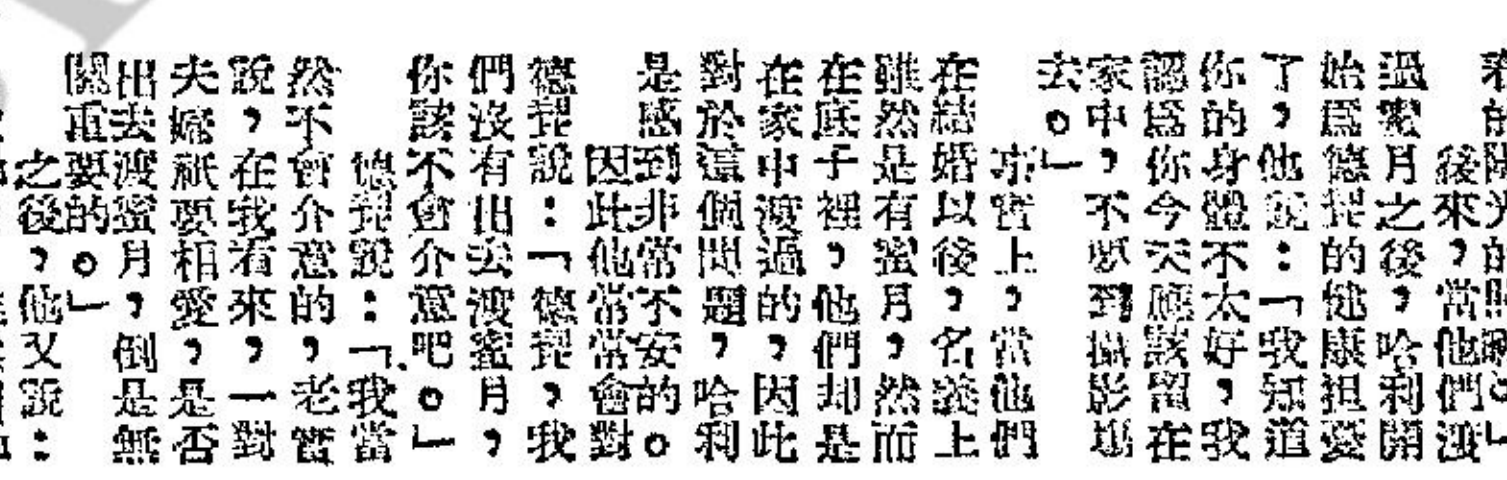 後來，當他們渡
過蜜月之後，哈利開
始爲德琵的健康担憂
了，他說：「我知道
你的身體不太好，我
認爲你今天應該留在
家中，不要到攝影場
去。」
事實上，當他們
在結婚以後，名義上
雖然是有蜜月，然而
在底子裡，他們却是
在家中渡過的，因此
對於這個問題，哈利
是感到非常不安的。
因此他常常會對
德琵說：「德琵，我
們沒有出去渡蜜月，
你該不會介意吧。」
德琵說：「我當
然不會介意的，老實
說，在我看來，一對
夫婦祇要相愛，是否
出去渡蜜月，倒是無
關重要的。」
之後，他又說：